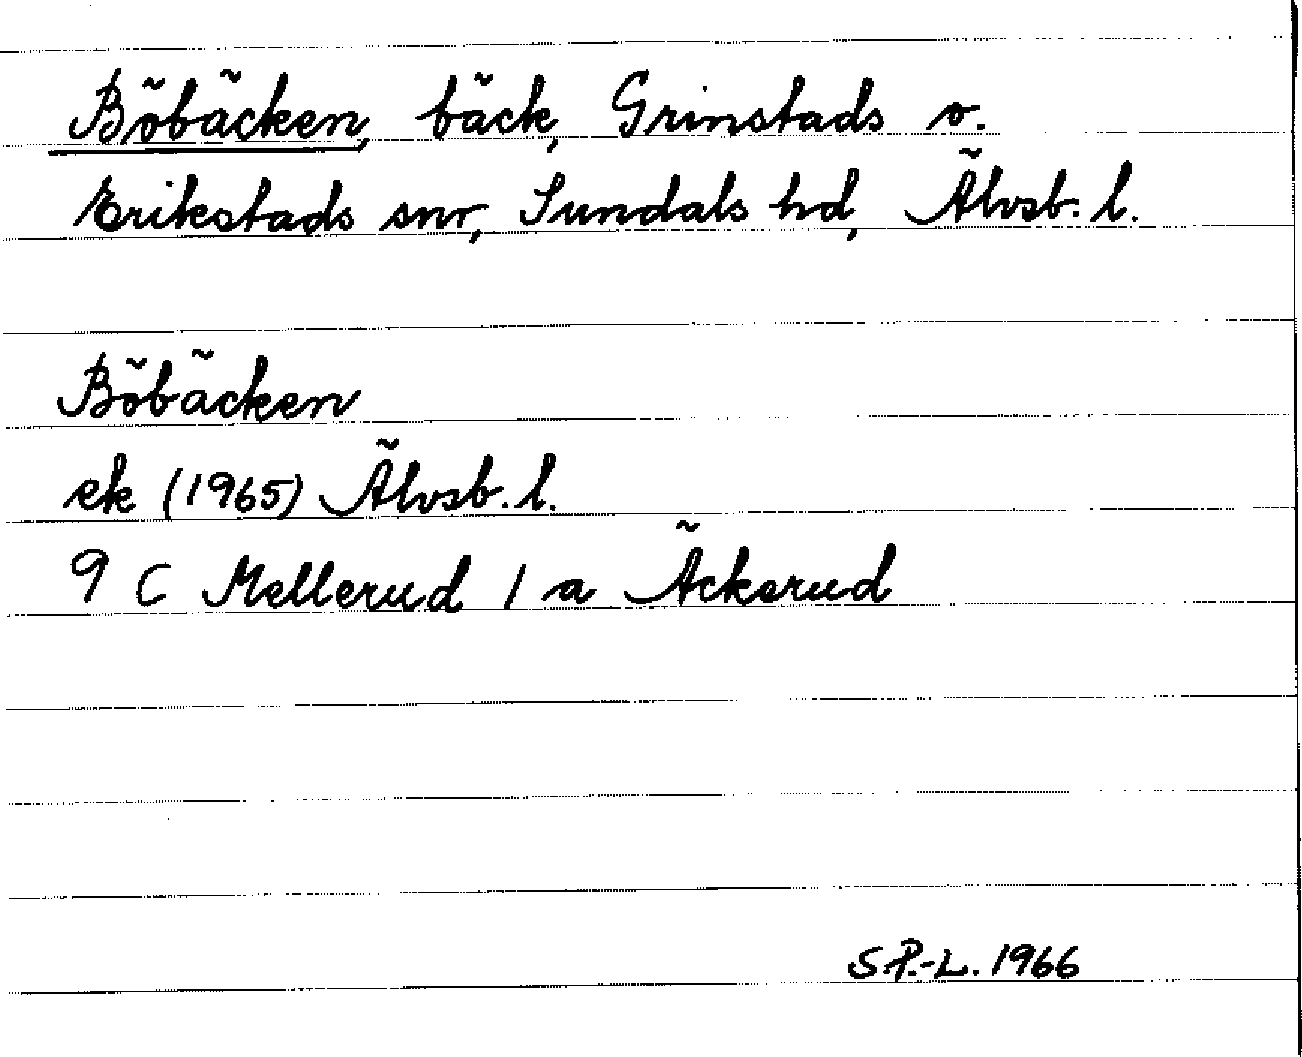 Böbäcken, bäck, Grinstads o.
Erikstads snr, Sundals hd, Älvsb. l.
Böbäcken
ek (1965) Älvsb. l.
9 C Mellerud 1 a Äckerud
S P.-L. 1966